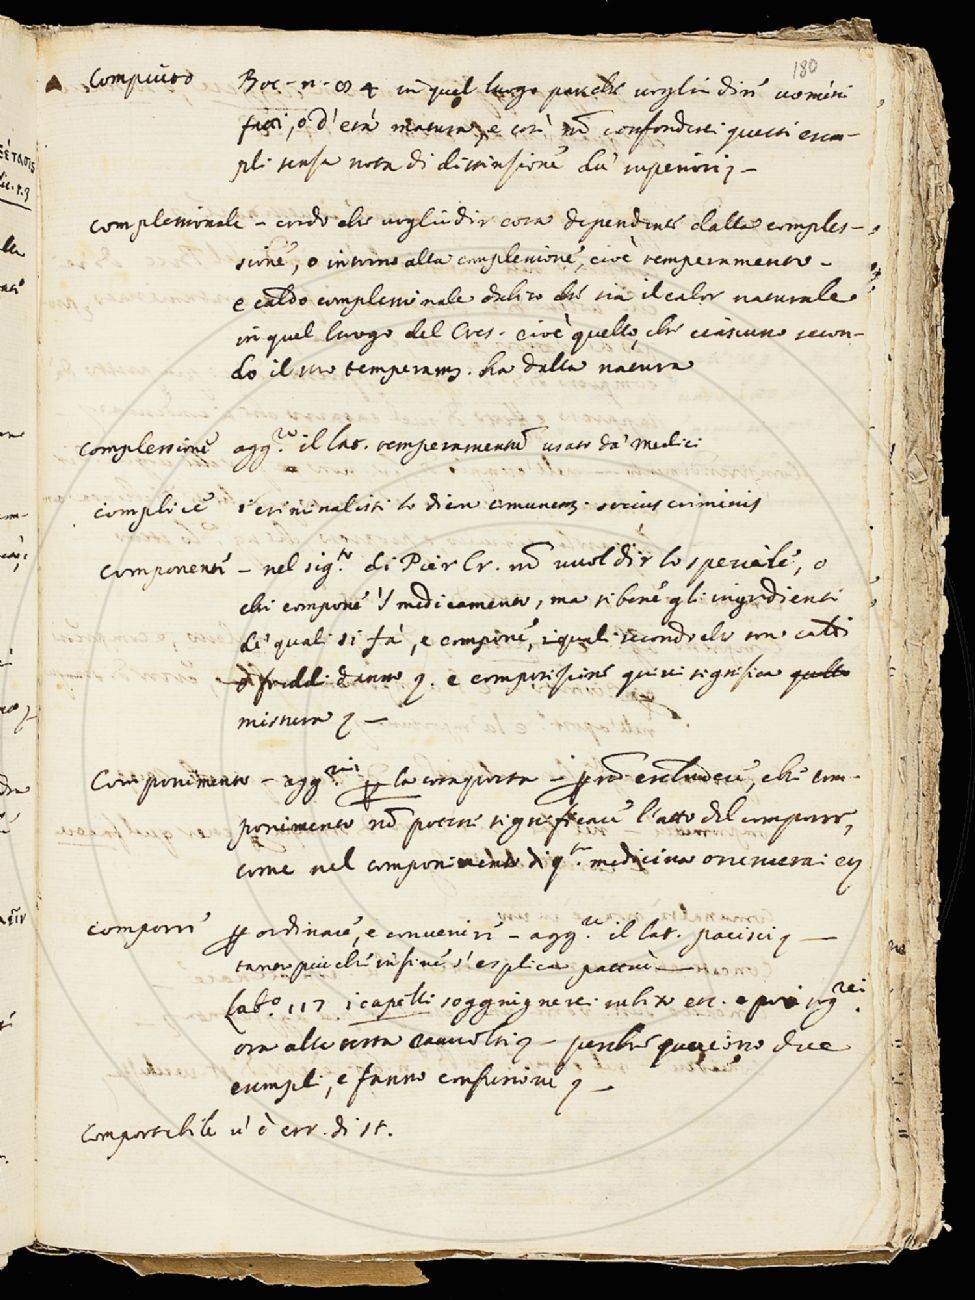 180
Compiuto Boc. n. 84 in quel luogo par che voglia dire uomini
fatti, o d'età matura, e così nō confonderei questi esem-
pli senza nota di distinzione da' superiori
complessionale – credo che voglia dir cosa dependente dalla comples-
sione, o intorno alla complessione, cioè temperamento –
e caldo complessionale dubito che sia il calor naturale
in quel luogo del Cres. cioè quello, che ciascuno secon-
do il suo temperam. ha dalla natura
complessione agg.re il lat. temperamentū usato da' Medici
complice i criminalisti lo dicon comunem. socius criminis
componente – nel sig.to di Pier Cr. nō vuol dir lo speziale, o
chi compone 'l medicamento, ma sibene gl'ingredienti
de' quali si fà, e compone, i quali secondo che son caldi
o freddi danno e composizione quivi significa
mistura
Componimento – agg.rei la composta – escludere, che com-
ponimento nō potesse significare l'atto del comporre,
come nel componimento di q.ta medicina
comporre ordinare, e convenire – agg.re il lat. pacisci
tanto più che infine s'esplica pattuire
Lab.o 117 i capelli soggiugnerei subito
ora alla testa ravvolti – perche queste sono due
esempli, e fanno confusione
comportabile v'è err. di st.